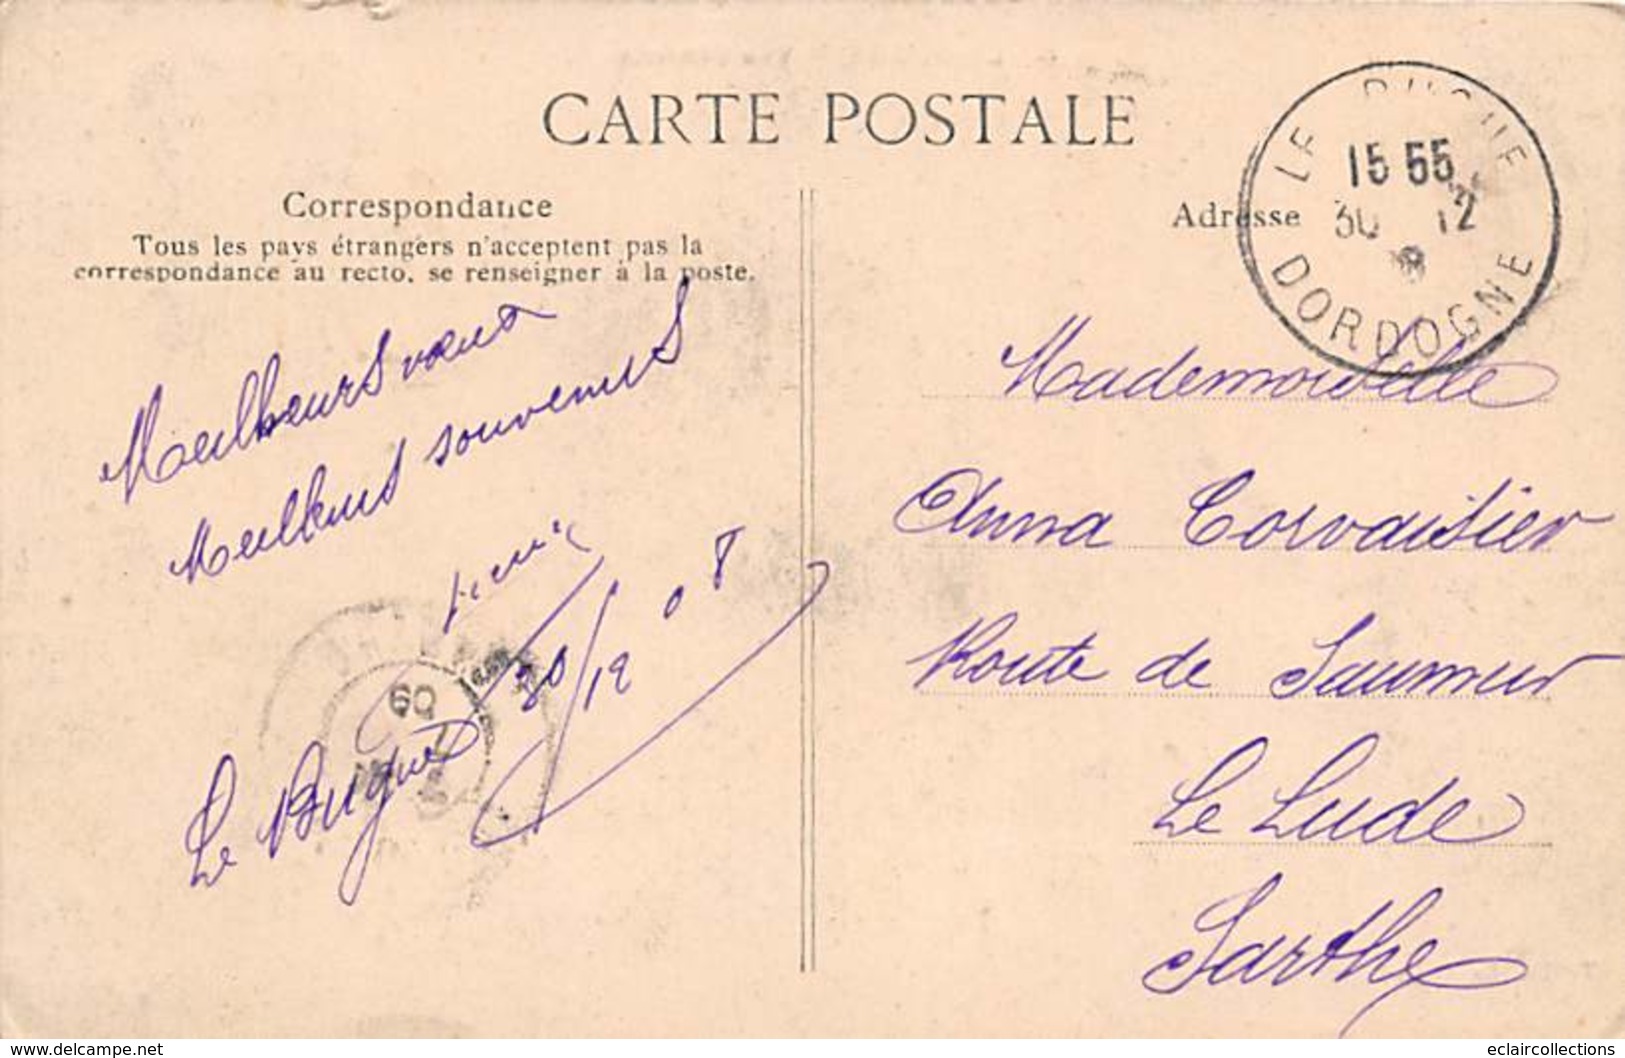 CARTE POSTALE
Correspondance
Tous les pays étrangers n'acceptent pas la
correspondance au recto, se renseigner à la poste.
Meilleurs vœux
Meilleurs souvenirs
Le Bugue 30/12 08
Adresse
LE BUGUE
15 55
30 12
DORDOGNE
Mademoiselle
Anna Corvaisier
Route de Saumur
Le Lude
Sarthe
09
www.delcampe.net
eclaircollections